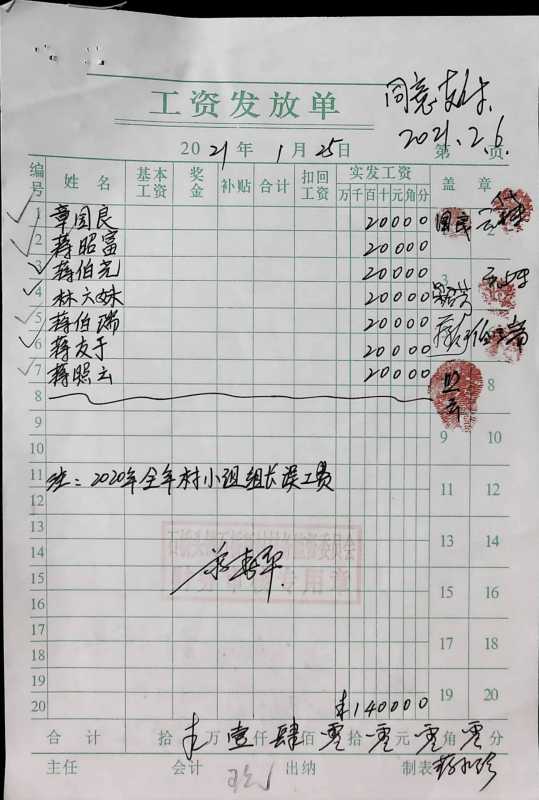 同意支付
2021.2.6
工资发放单
2021年1月25日 第 页
编号 姓名 基本工资 奖金 补贴 合计 扣回工资 实发工资 盖章
万千百十元角分
1 章国良 20000
2 蒋昭富 20000 2
3 蒋伯尧 20000 3
4 林六妹 20000
5 蒋伯瑞 20000
6 蒋友于 20000
7 蒋照云 20000
8 8
9 9
10 10
11 注：2020年全年村小组组长误工费 11
12 12
13 13
14 14
15 15
16 16
17 17
18 18
19 19
20 ¥140000 20
合计 拾 万壹仟肆佰零拾零元零角零分
主任 会计 出纳 制表